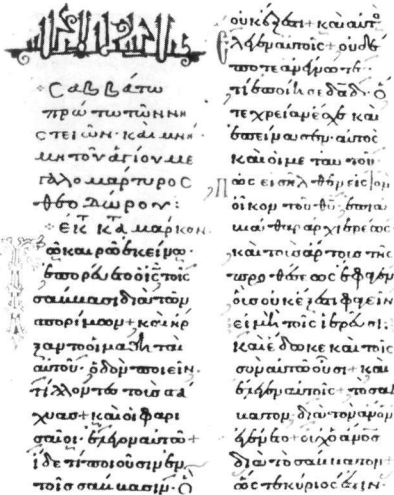 Σαββάτω
πρώτω τῶν νη
στειῶν· καὶ μνή
μη τοῦ ἁγίου με
γαλομάρτυρος
Θεοδώρου:
ἐκ τ κατὰ Μάρκον
Τῶ καιρῶ ἐκείνω
ἐπορεύετο ὁ ις τοῖς
σάββασι διὰ τῶν
σπορίμων + καὶ ἤρ
ξαντο οἱ μαθηταὶ
αὐτοῦ· ὁδὸν ποιεῖν
τίλλοντες τοὺς στά
χυας + καὶ οἱ φαρι
σαῖοι· ἔλεγον αὐτῶ +
ἴδε τί ποιοῦσιν ἐν
τοῖς σάββασιν· ὃ
οὐκ ἔξεστι + καὶ αὐτὸς
ἔλεγεν αὐτοῖς + οὐδέ
ποτε ἀνέγνωτε
τί ἐποίησε δαδ· ὅ
τε χρείαν ἔσχε καὶ
ἐπείνασεν· αὐτὸς
καὶ οἱ μετ αὐτοῦ·
πῶς εἰσῆλθεν εἰς τὸν
οἶκον τοῦ θυ ἐπὶ ἀ
βιάθαρ ἀρχιερέως
καὶ τοὺς ἄρτους τῆς
προθέσεως ἔφαγεν
οὓς οὐκ ἔξεστι φαγεῖν
εἰ μὴ τοῖς ἱερεῦσι·
καὶ ἔδωκε καὶ τοῖς
σὺν αὐτῶ οὖσι + καὶ
ἔλεγεν αὐτοῖς + τὸ σάβ
βατον διὰ τὸν ἄνον
ἐγένετο + οὐχ ὁ ἄνος
διὰ τὸ σάββατον +
ὥστε κύριός ἐστιν·